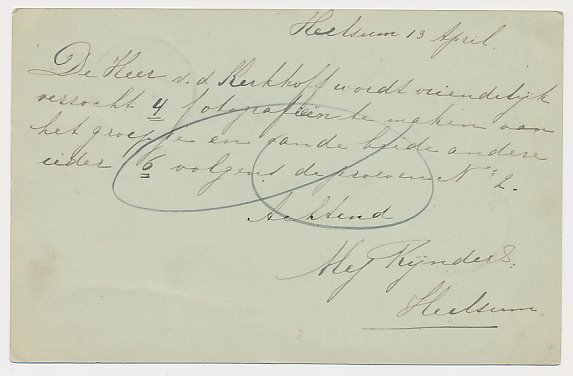 Heelsum 13 April.
De Heer v. d Kerkhoff wordt vriendelijk
verzocht 4 fotografiën te maken van
het groepje en van de beide andere
ieder 6 volgens de proeven N° 2.
Achtend
Mej Rijnders.
Heelsum.